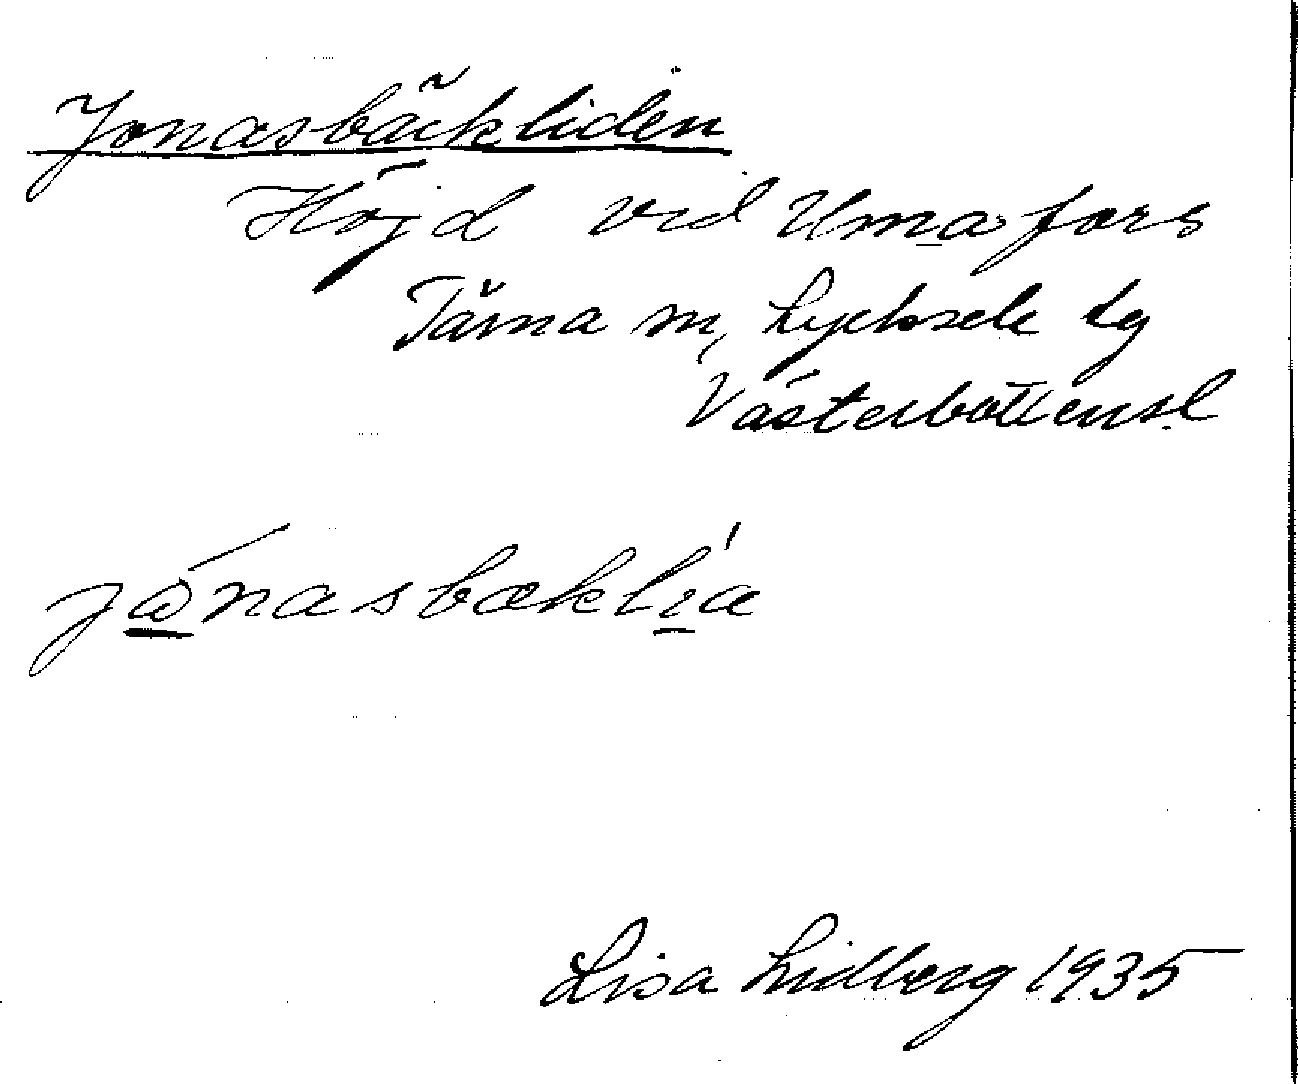 Jonasbäckliden
Höjd vid Umafors
Tärna sn, Lycksele lg
Västerbottensl.
jònasbæklía
Lisa Lidberg 1935